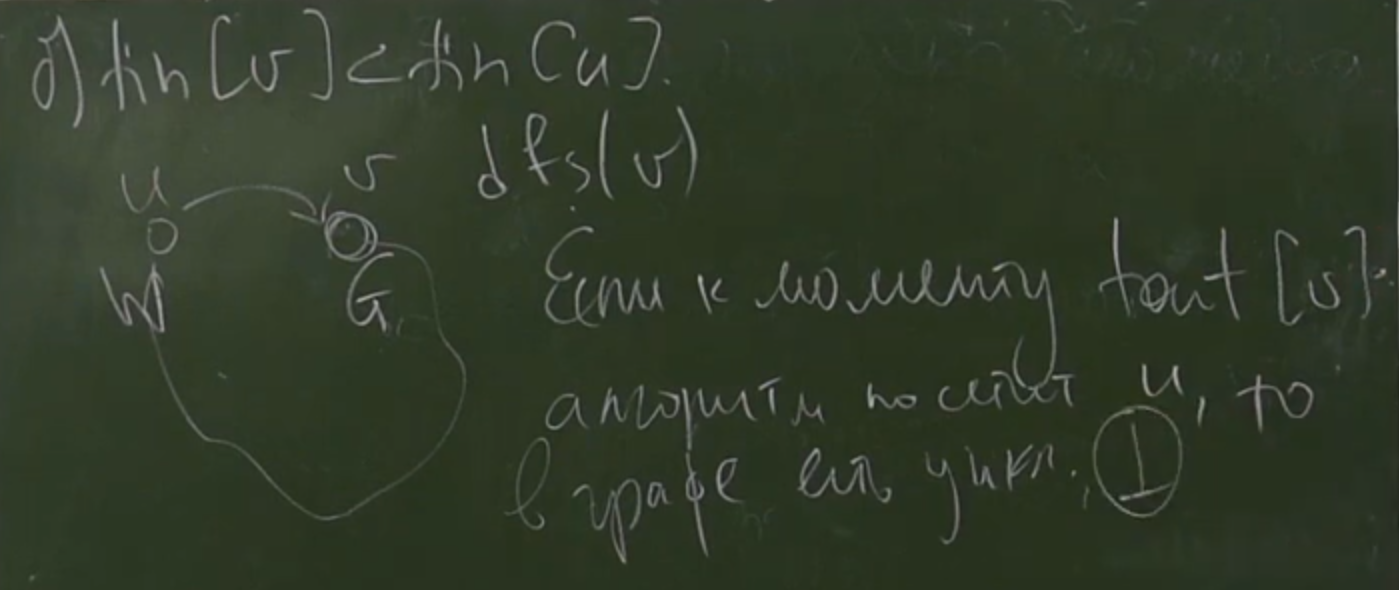 б) tin[v] < tin[u].
dfs(v)
u v
W G
Если к моменту tout[v]
алгоритм посетит u, то
в графе есть цикл, ⊥